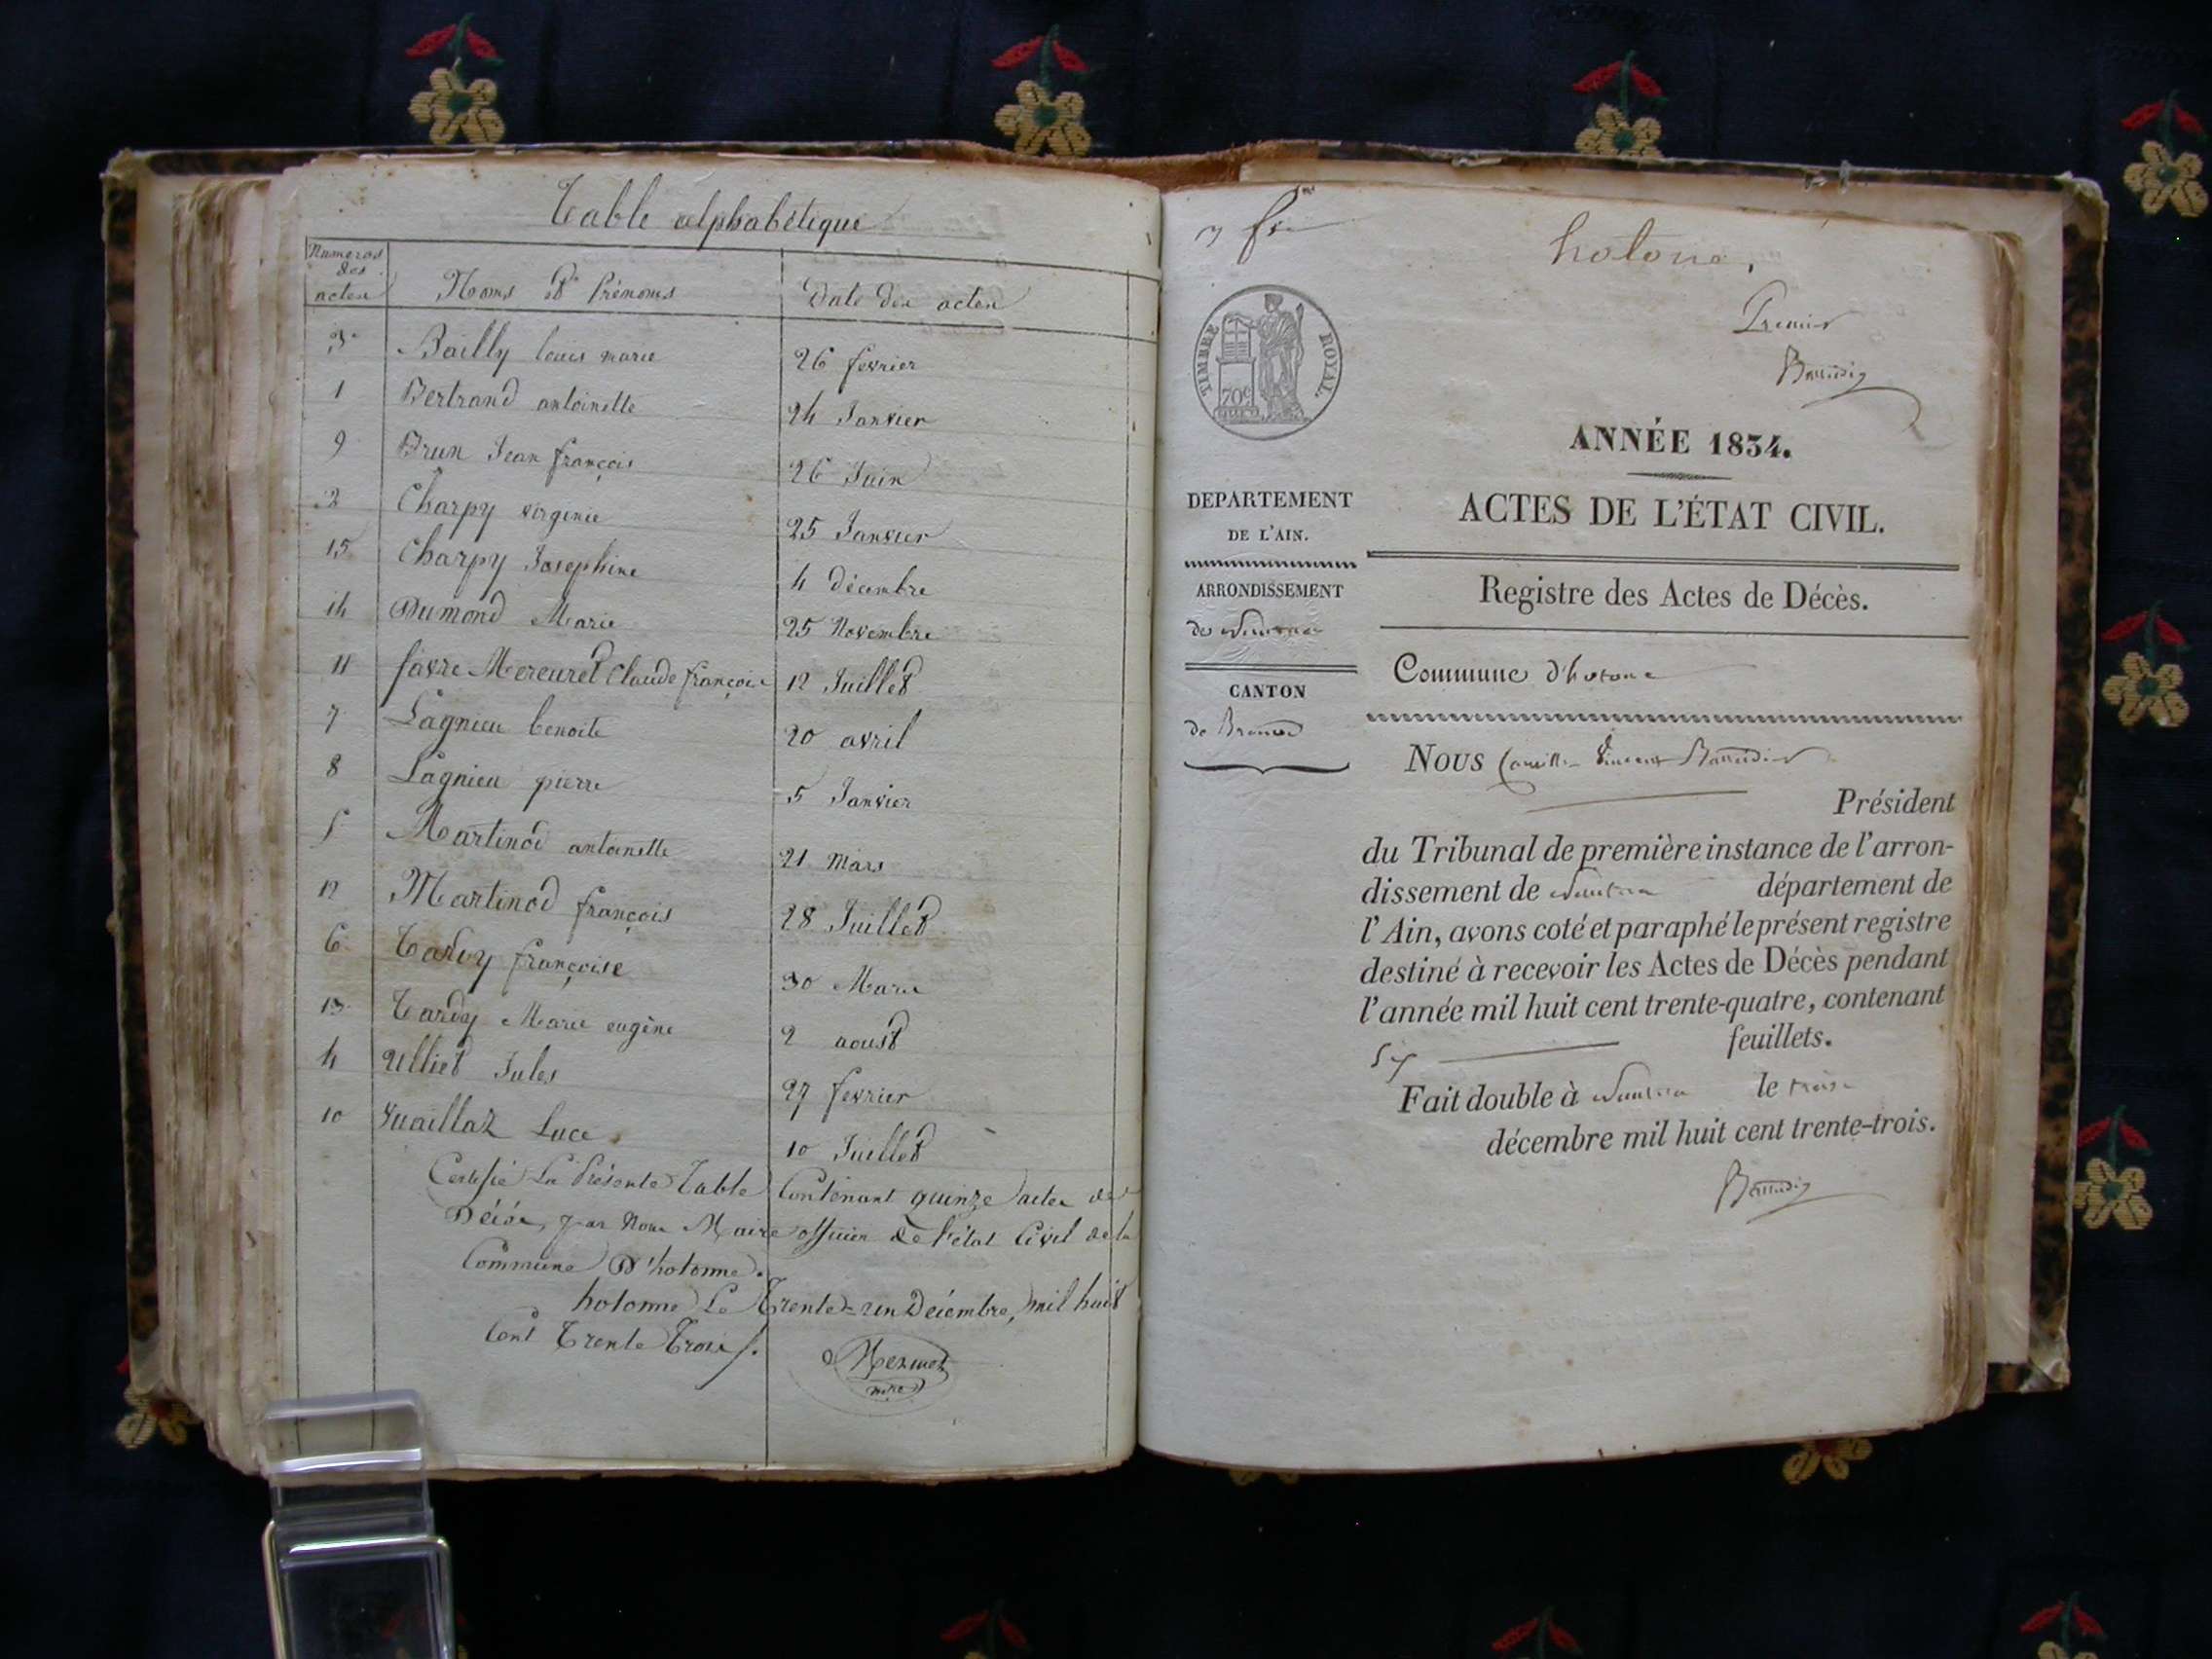 Table alphabétique
Numeros des actes
Noms et Prénoms
Date des actes
3 Bailly louis marie 26 fevrier
1 Bertrand antoinette 24 Janvier
9 Brun Jean françois 26 Juin
2 Charpy virginie 25 Janvier
15 Charpy Josephine 4 décembre
14 Dumond Marie 25 Novembre
11 favre Mercuret Claude françois 12 Juillet
7 Lagnieu benoite 20 avril
8 Lagnieu pierre 5 Janvier
5 Martinod antoinette 21 Mars
12 Martinod françois 28 Juillet
6 Tardy françoise 30 Mars
13 Tardy Marie eugène 2 aoust
4 Ulliet Jules 27 fevrier
10 Vuaillaz Luce 10 Juillet
Certifié La Présente Table Contenant quinze actes de
Décés, par Nous Maire officier de l'état Civil de la
Commune D'hotonne.
hotonne Le Trente-un Décembre, mil huit
Cent Trente Trois.
mre
hotonne.
Premier
TIMBRE ROYAL
70c
ANNÉE 1834.
ACTES DE L'ÉTAT CIVIL.
DEPARTEMENT
DE L'AIN.
ARRONDISSEMENT
de Nantua
CANTON
de Brenod
Registre des Actes de Décès.
Commune d'hotonne
Nous Camille Vincent Baudin
Président
du Tribunal de première instance de l'arron-
dissement de Nantua département de
l'Ain, avons coté et paraphé le présent registre
destiné à recevoir les Actes de Décès pendant
l'année mil huit cent trente-quatre, contenant
six feuillets.
Fait double à Nantua le trois
décembre mil huit cent trente-trois.